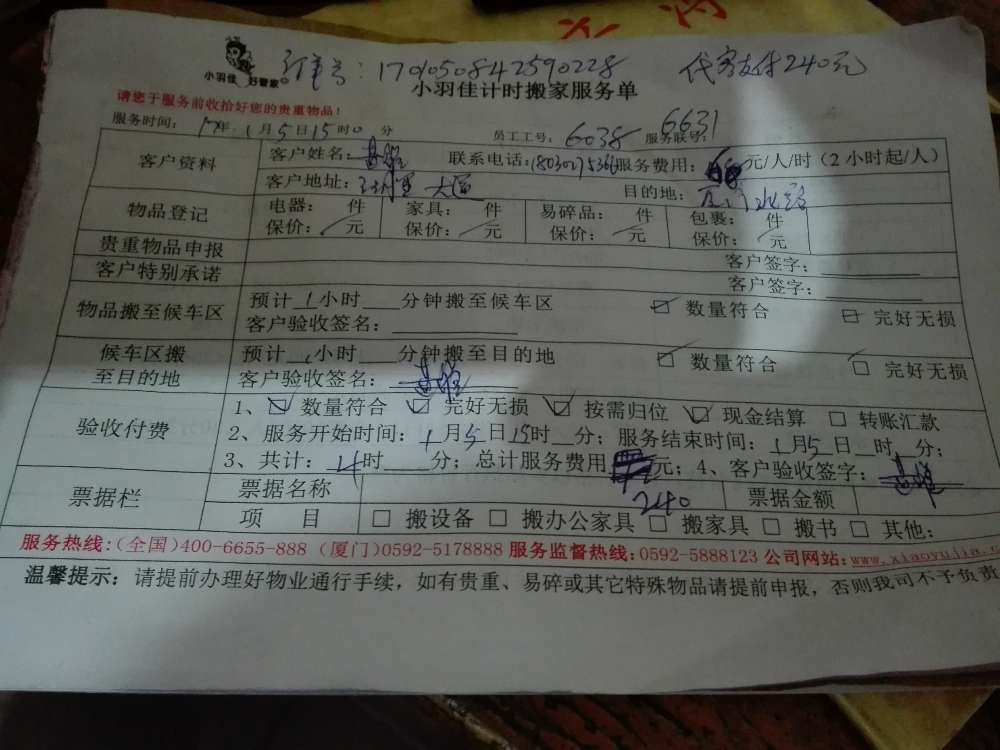 小羽佳 好管家
订单号：1701050842590228 代客支付240元
小羽佳计时搬家服务单
请您于服务前收拾好您的贵重物品！
服务时间：17年1月5日15时0分 员工工号：6038 服务联号：6631
客户资料 客户姓名： 联系电话： 服务费用： 元/人/时（2小时起/人）
客户地址： 大道 目的地：
物品登记 电器： 件 家具： 件 易碎品： 件 包裹： 件
保价： 元 保价： 元 保价： 元 保价： 元
贵重物品申报 客户签字：
客户特别承诺 客户签字：
物品搬至候车区 预计1小时 分钟搬至候车区 数量符合 完好无损
客户验收签名：
候车区搬至目的地 预计 小时 分钟搬至目的地 数量符合 完好无损
客户验收签名：
验收付费 1、数量符合 完好无损 按需归位 现金结算 转账汇款
2、服务开始时间：1月5日15时 分；服务结束时间：1月5日 时 分；
3、共计： 时 分；总计服务费用 元；4、客户验收签字：
240
票据栏 票据名称 票据金额
项 目 搬设备 搬办公家具 搬家具 搬书 其他：
服务热线：(全国)400-6655-888 (厦门)0592-5178888 服务监督热线：0592-5888123 公司网站：www.xiaoyujia.
温馨提示：请提前办理好物业通行手续，如有贵重、易碎或其它特殊物品请提前申报，否则我司不予负责